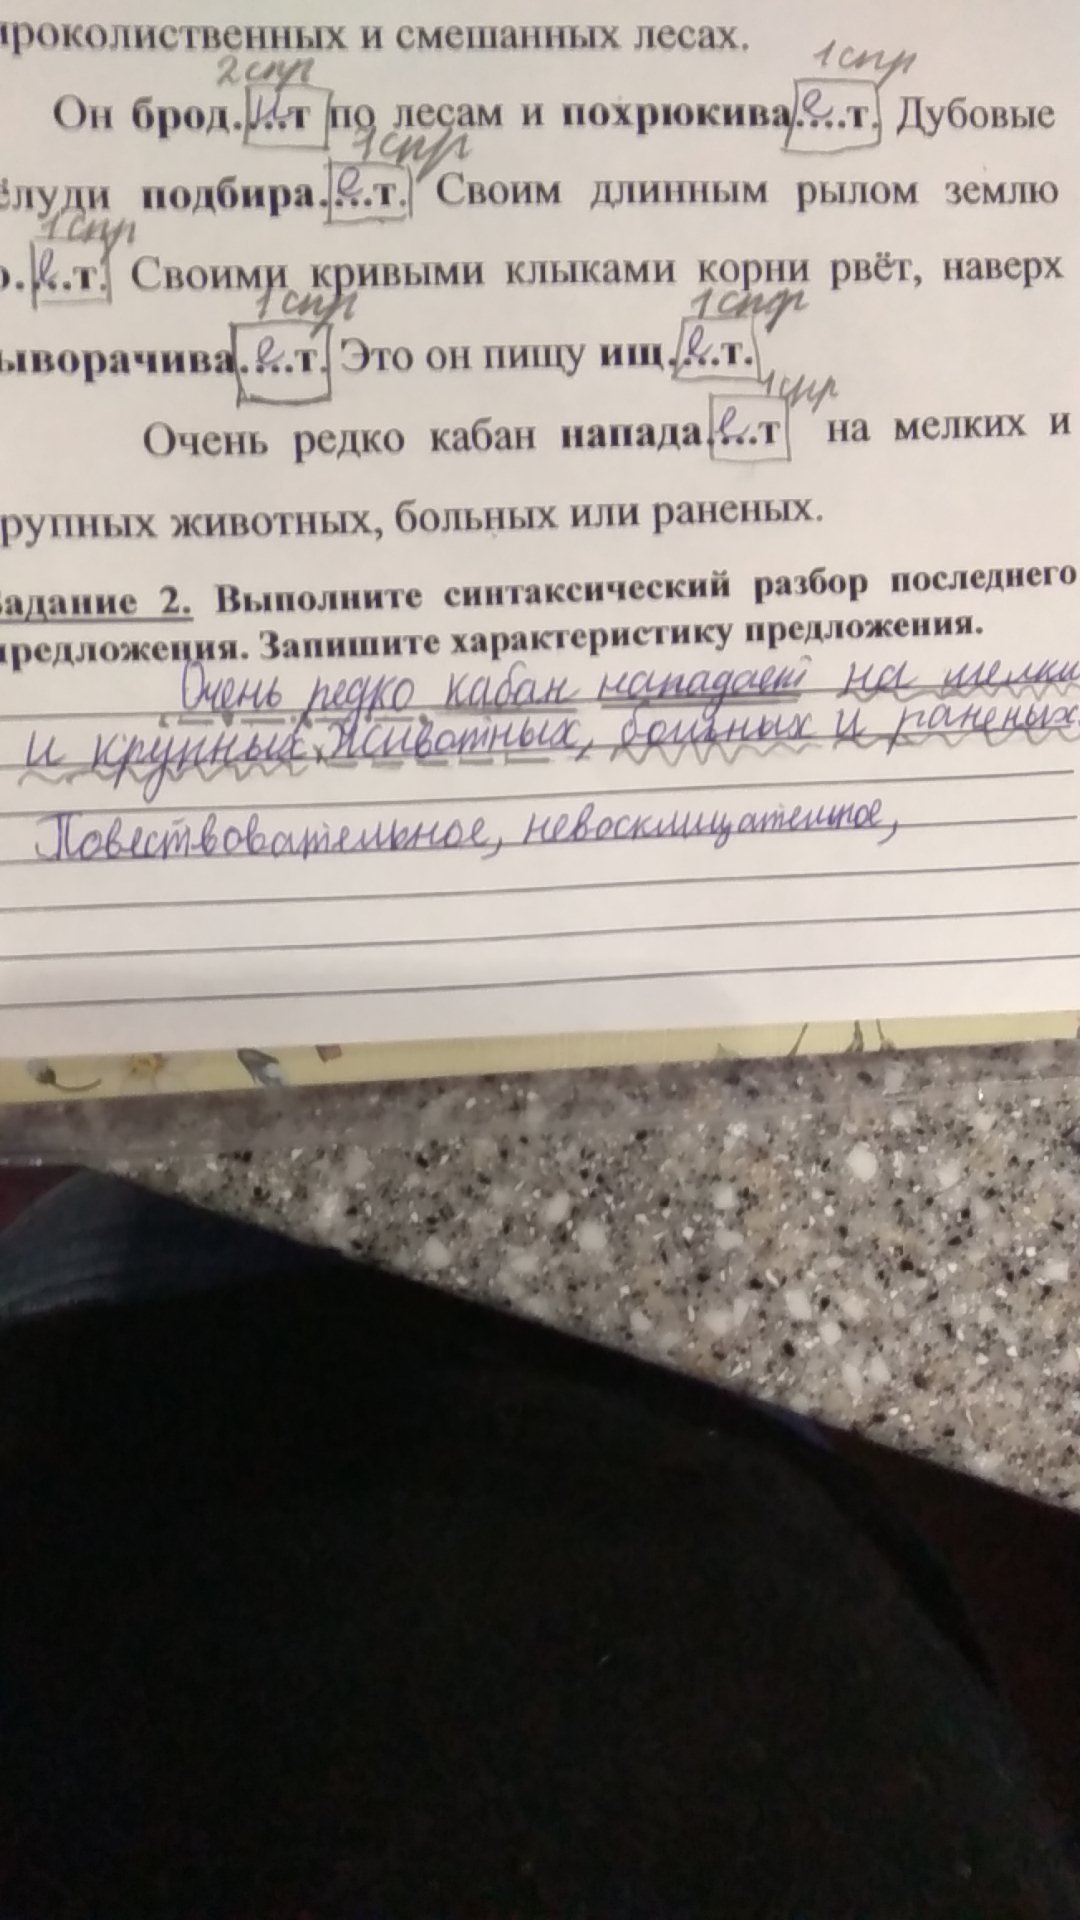 ироколиственных и смешанных лесах.
2 спр 1 спр
Он брод.и..т по лесам и похрюкива.е..т. Дубовые
1 спр
ёлуди подбира.е..т. Своим длинным рылом землю
1 спр
о.е..т. Своими кривыми клыками корни рвёт, наверх
1 спр 1 спр
ыворачива.е..т. Это он пищу ищ.е..т.
1 спр
Очень редко кабан напада.е..т на мелких и
рупных животных, больных или раненых.
Задание 2. Выполните синтаксический разбор последнего
предложения. Запишите характеристику предложения.
Очень редко кабан нападает на мелки
и крупных животных, больных и раненых.
Повествовательное, невосклицательное,